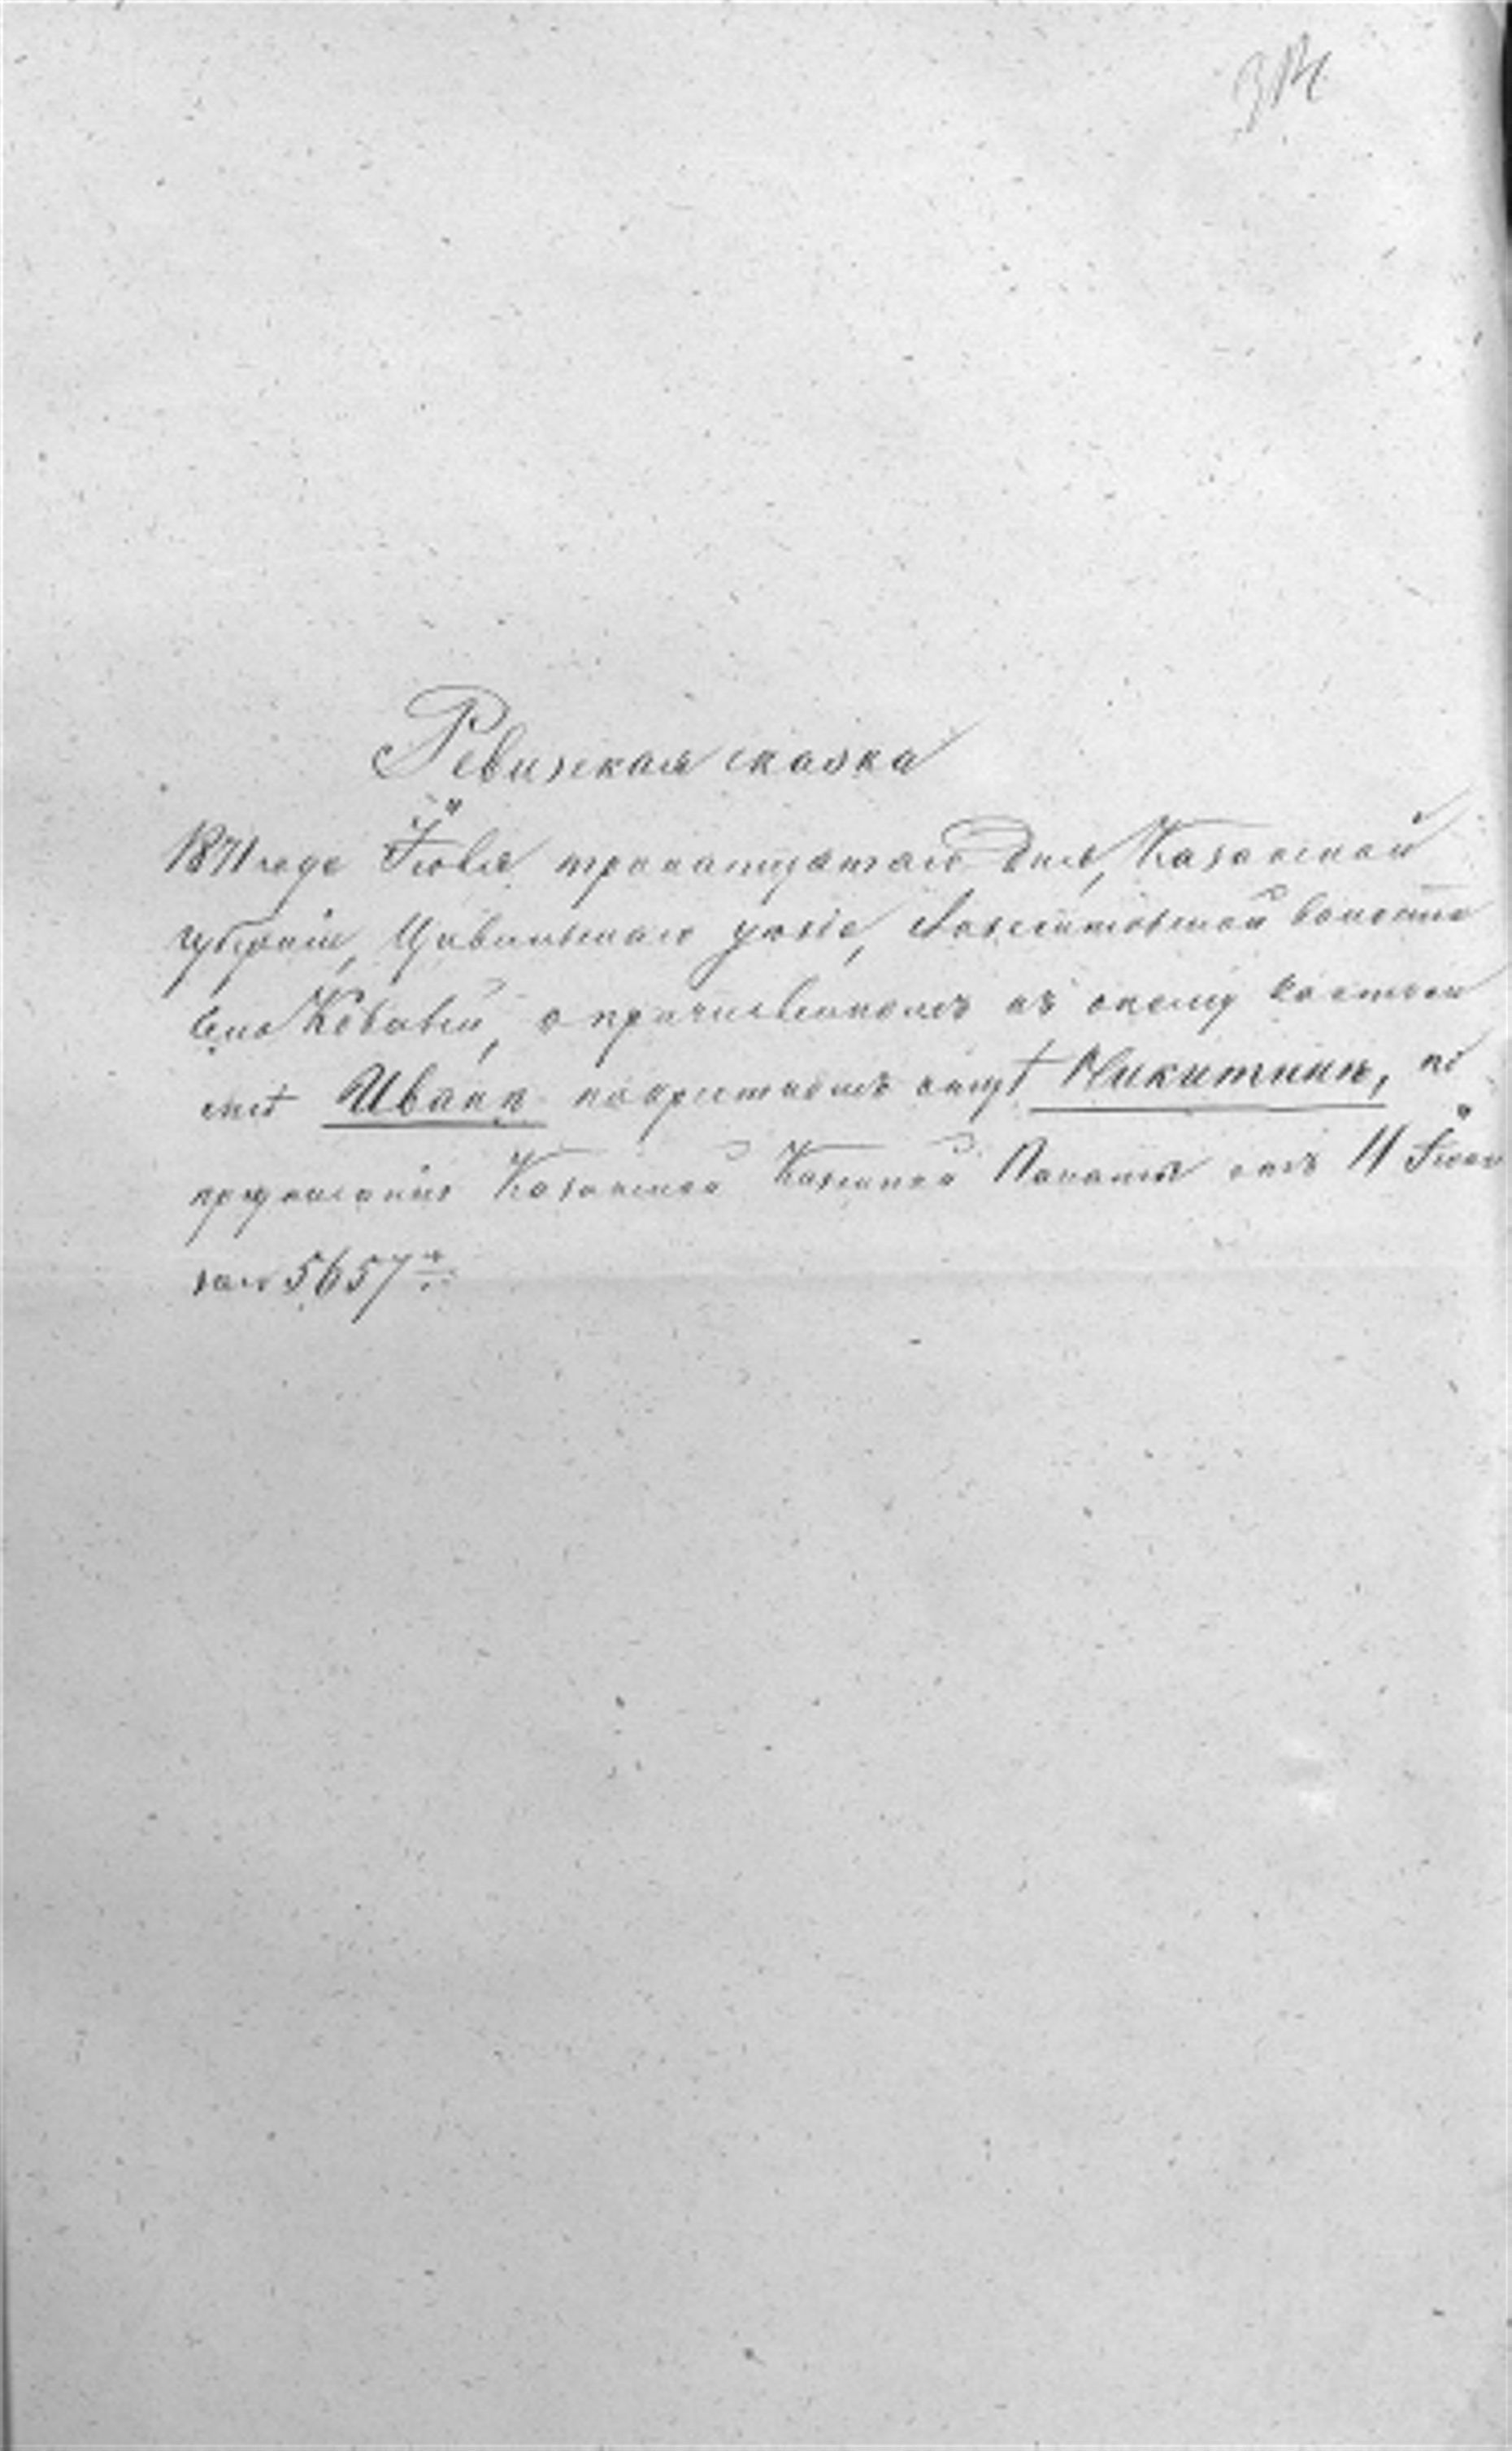 Ревизская сказка
1871 года Іюля тринатцатаго дня, Казанской
губерніи, Цивильскаго уезда, волости
села Ковалей, о причисленномъ къ оному
Иванъ по крестномъ отцѣ Никитинъ, по
предписанию Казанской Казенной Палаты отъ 11 Іюня
за № 5657